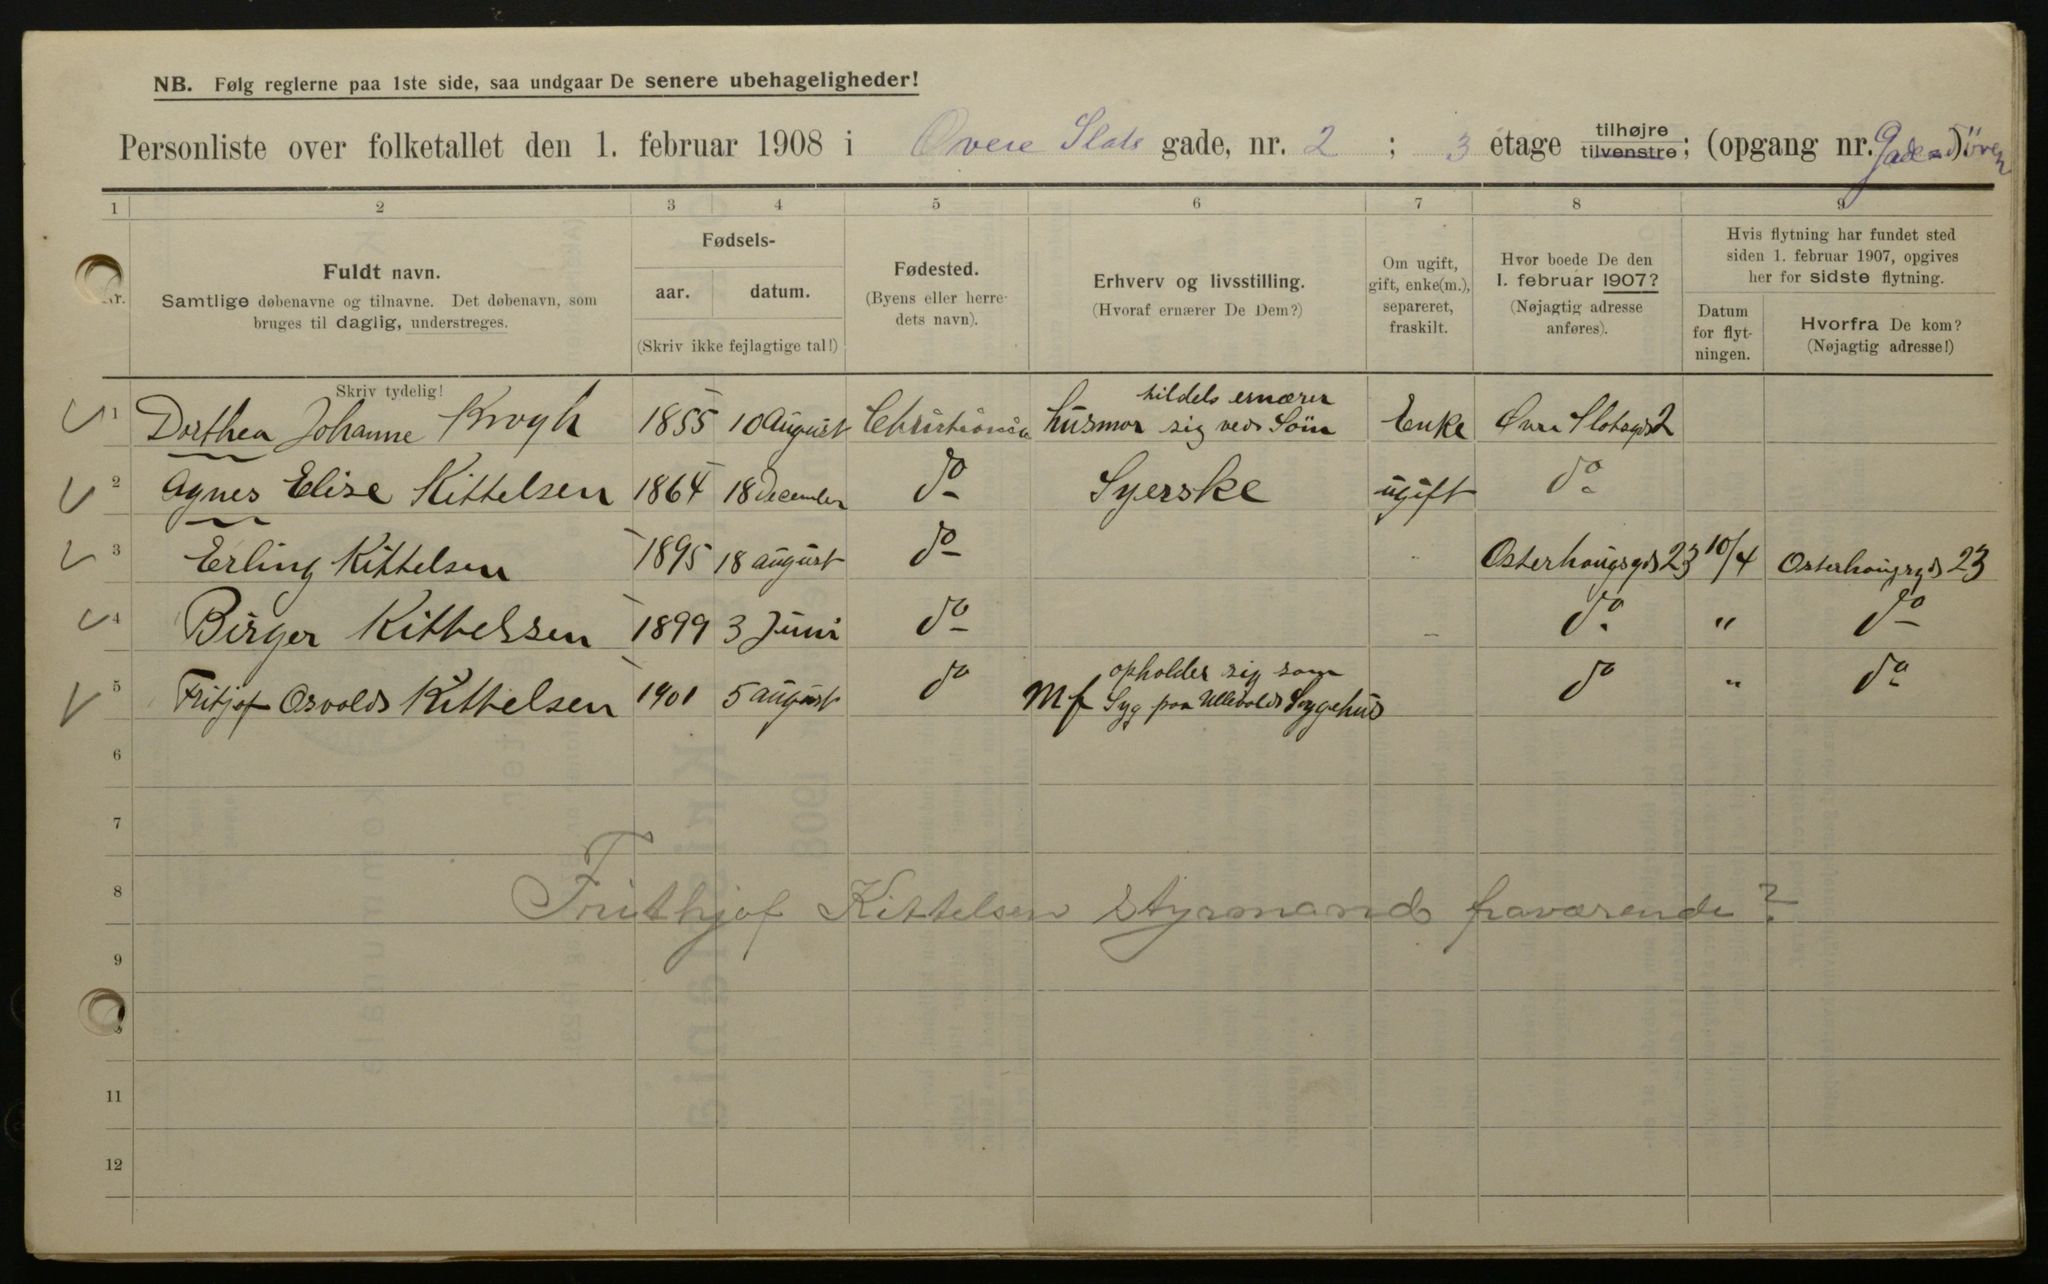 NB. Følg reglerne paa 1ste side, saa undgaar De senere ubehageligheder!
Personliste over folketallet den 1. februar 1908 i Øvere Slots gade, nr. 2 ; 3 etage tilhøjre tilvenstre; (opgang nr. Gade-Dören)
1 2 3 4 5 6 7 8 9
Nr.
Fuldt navn.
Samtlige døbenavne og tilnavne. Det døbenavn, som
bruges til daglig, understreges.
Skriv tydelig!
Fødsels-
aar. datum.
(Skriv ikke fejlagtige tal!)
Fødested.
(Byens eller herre-
dets navn).
Erhverv og livsstilling.
(Hvoraf ernærer De Dem?)
Om ugift,
gift, enke(m.),
separeret,
fraskilt.
Hvor boede De den
1. februar 1907?
(Nøjagtig adresse
anføres).
Hvis flytning har fundet sted
siden 1. februar 1907, opgives
her for sidste flytning.
Datum
for flyt-
ningen.
Hvorfra De kom?
(Nøjagtig adresse!)
1 Dorthea Johanne Krogh 1855 10 August Christiania husmor tildels ernærer sig ved Sön Enke Øvre Slotsgd 2
2 Agnes Elise Kittelsen 1864 18 December do Syerske ugift do
3 Erling Kittelsen 1895 18 august do Osterhougsgd 23 10/4 Osterhougsgd 23
4 Birger Kittelsen 1899 3 Juni do do " do
5 Fritjof Osvold Kittelsen 1901 5 august do Mf opholder sig som Syg paa Ullevolds Sygehus do " do
6
7
8 Frithjof Kittelsen styrmand fraværende?
9
11
12